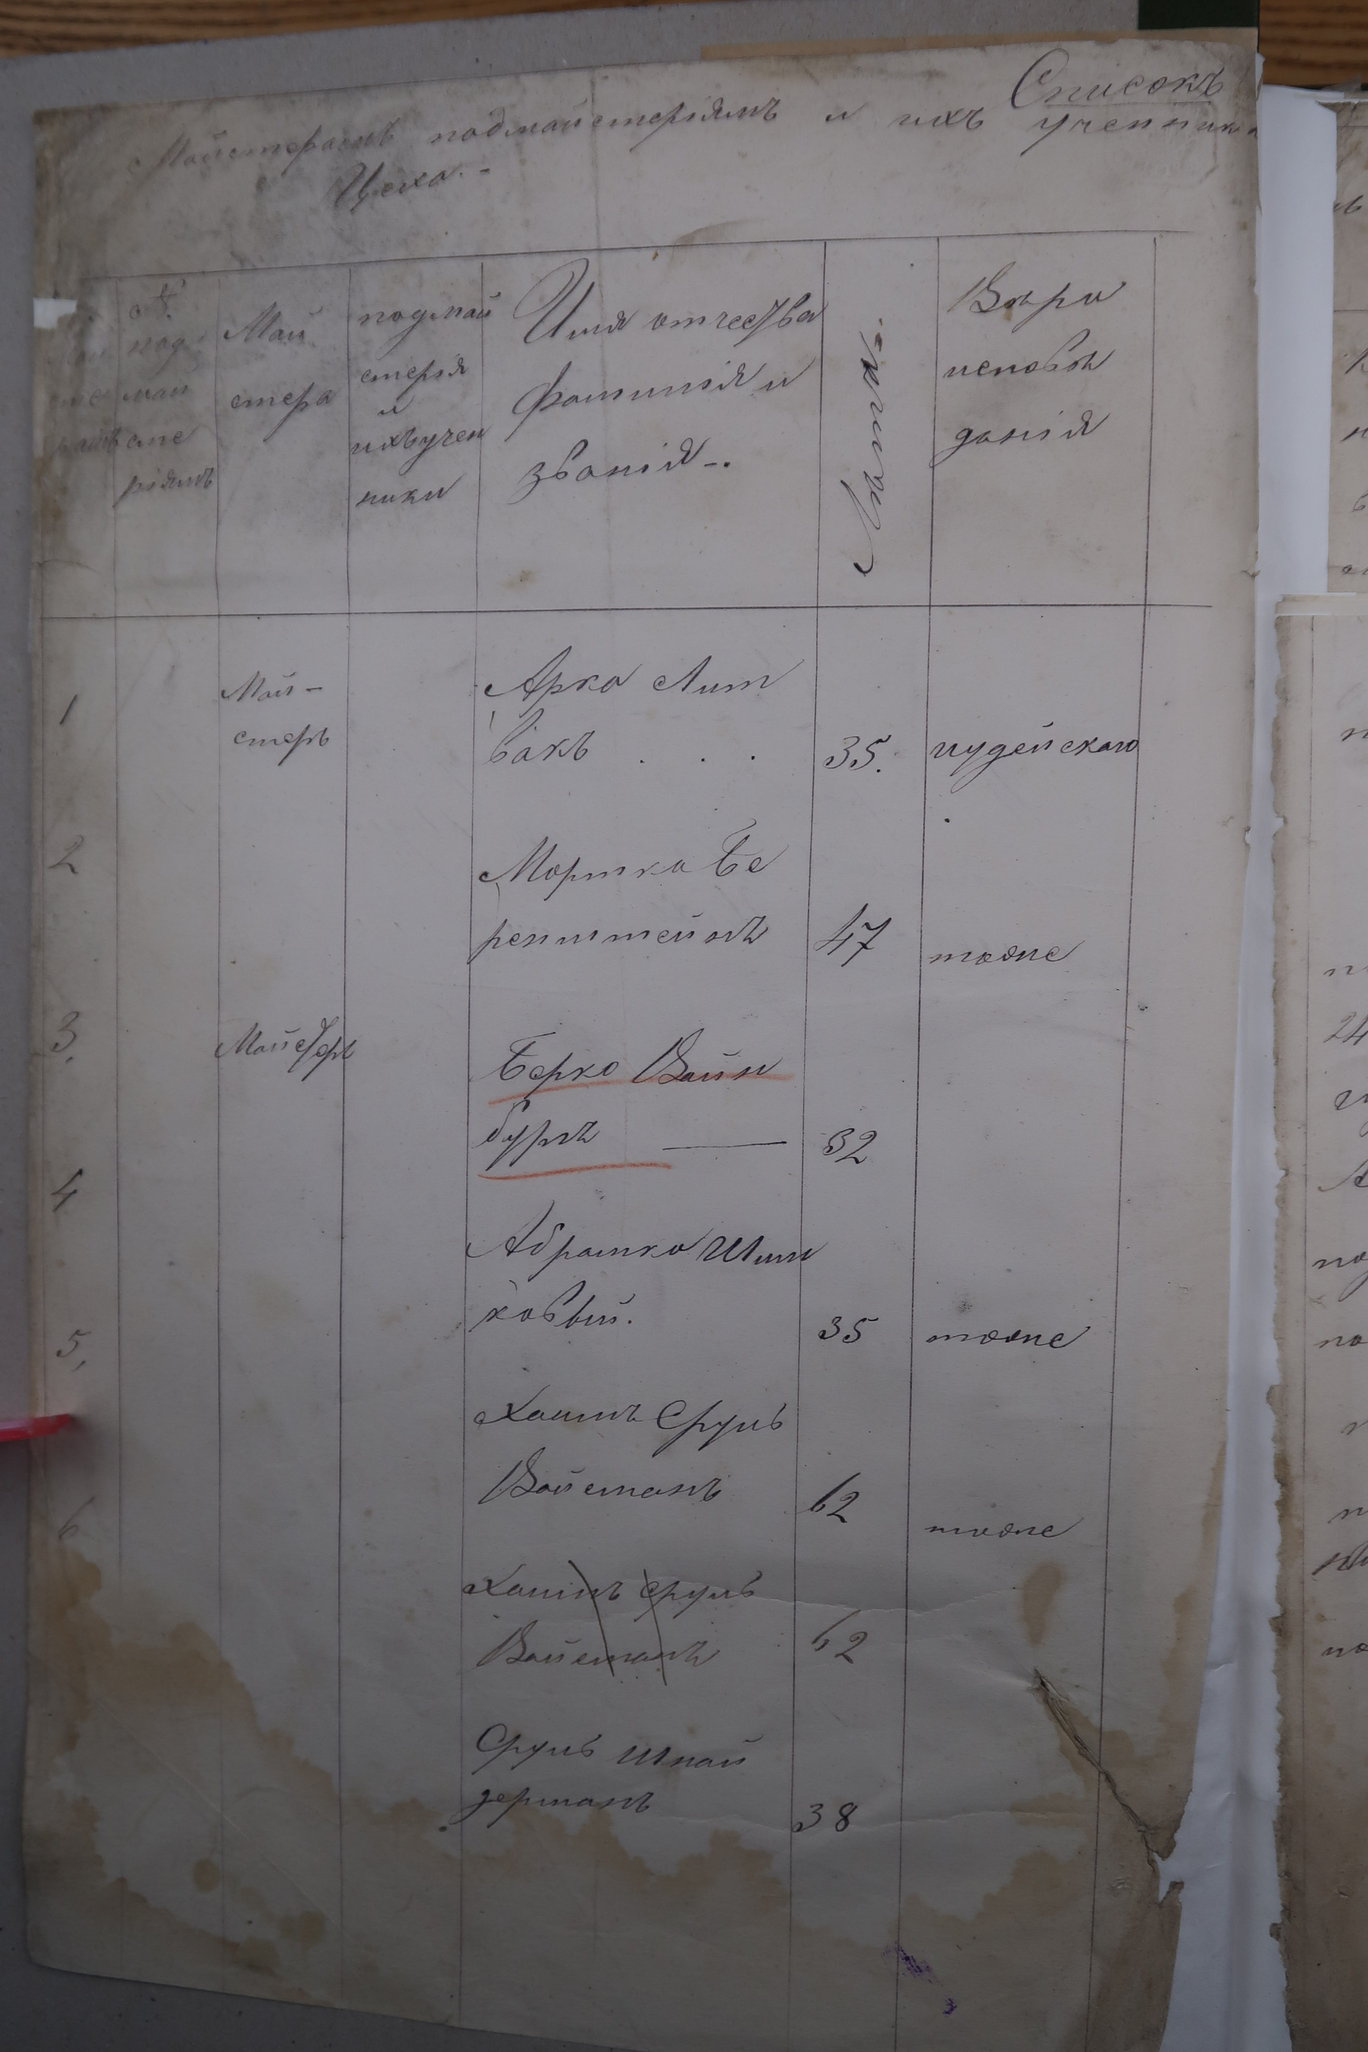 Списокъ
Майстерамъ подмайстерiямъ и ихъ ученика
Цеха.-
№
под
май
сте
рiямъ
Май
стера
подмай
стерiя
и
ихъ учен
ники
Имя отчества
фамилiя и
званiя-.
Лѣта.
Вѣра
исповѣ
данiя
1
Май-
стеръ
Арко Лит
вакъ . . .
35.
иудейскаго
2
Мортко Бе
ренштейнъ
47
тоже
3.
Майстеръ
Берко Вайн
бурнъ
32
4
Абрамко Шин
ковый.
35
тоже
5,
Хаимъ Сруль
Вайсманъ
62
тоже
6
Хаимъ Сруль
Вайсманъ
62
Сруль Шнай
дерманъ
38
24